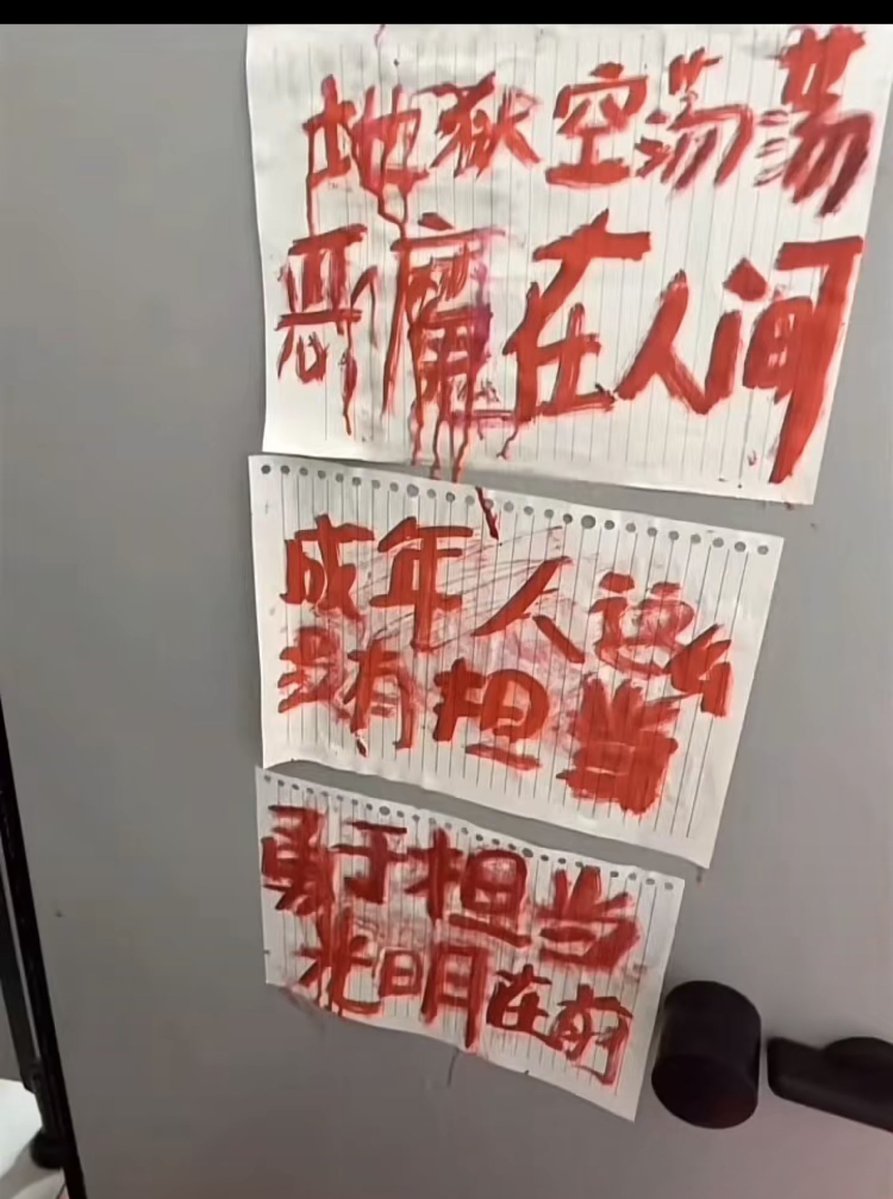 地狱空荡荡
恶魔在人间
成年人这么
没有担当
勇于担当
光明在前